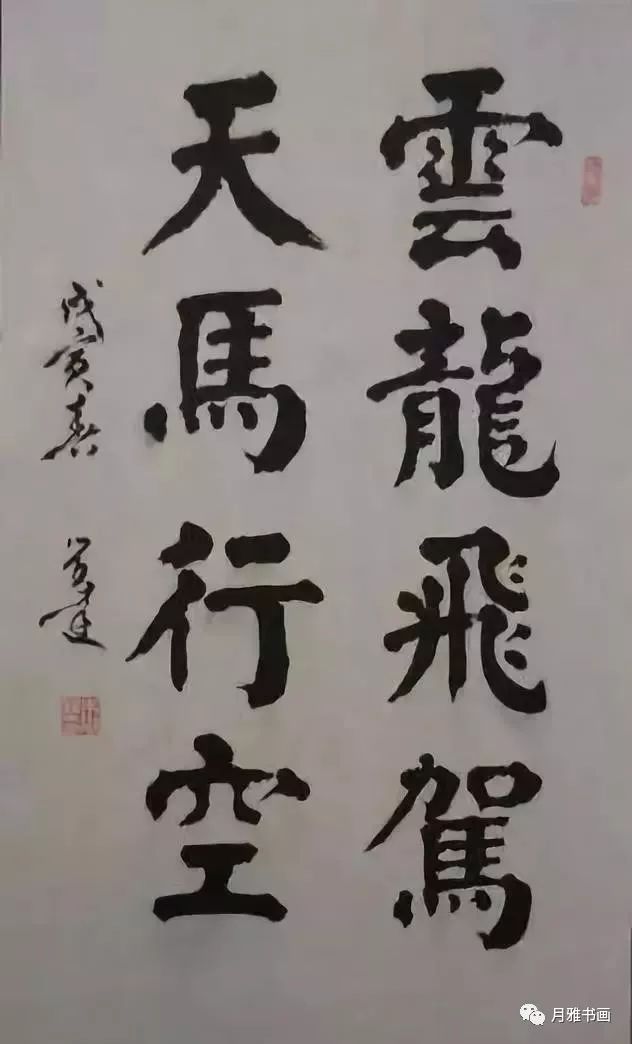 雲龍飛駕
天馬行空
戊寅春
月雅书画